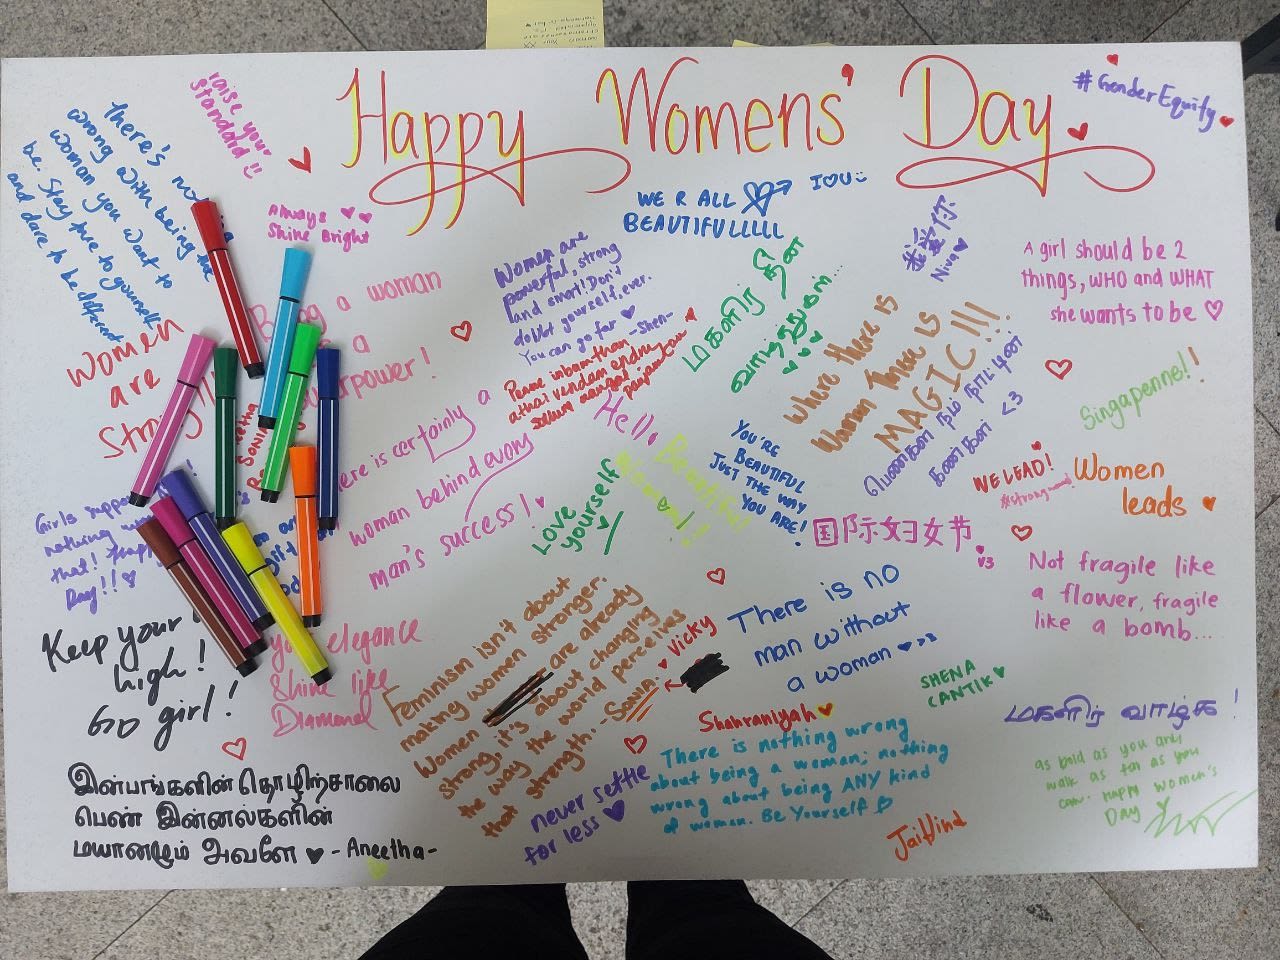 Happy Womens' Day
#GenderEquity
raise your
standard !!
there's
wrong with being the
woman you want to
be. Stay true to yourself
and dare to be different
Always
Shine Bright
WE R ALL
BEAUTIFULLLLL
I♡U
Women are
powerful, strong
and smart! Don't
doubt yourself, ever.
You can go far ♥
-Shen-
மகளிர் தின
வாழ்த்துகள்...
我爱你
Niva♥
A girl should be 2
things, WHO and WHAT
she wants to be ♡
a woman
a
erpower!
women
are
where there is
women there is
MAGIC!!!
<3
Singapenne!!
Hello
Beautiful
YOU'RE
BEAUTIFUL
JUST THE WAY
YOU ARE!
Love
yourself
here is certainly a
woman behind every
man's success!
WE LEAD!
Women
leads
国际妇女节
<3
Not fragile like
a flower, fragile
like a bomb...
Girls
nothing
that!
Day!!
Keep your
high!
Go girl!
elegance
Shine like
Diamond
Feminism isn't about
making women stronger.
Women are already
strong, it's about changing
the way the world perceives
that strength. -SANA.
Vicky
There is no
man without
a woman
SHENA
CANTIK
Shahraniyah
There is nothing wrong
about being a woman; nothing
wrong about being ANY kind
of woman. Be Yourself
never settle
for less
மகளிர் வாழ்க !
as bold as you are
walk as far as you
can. Happy Women's
Day
JaiHind
இன்பங்களின் தொழிற்சாலை
பெண் இன்னல்களின்
மயானமும் அவளே ♥ -Aneetha-